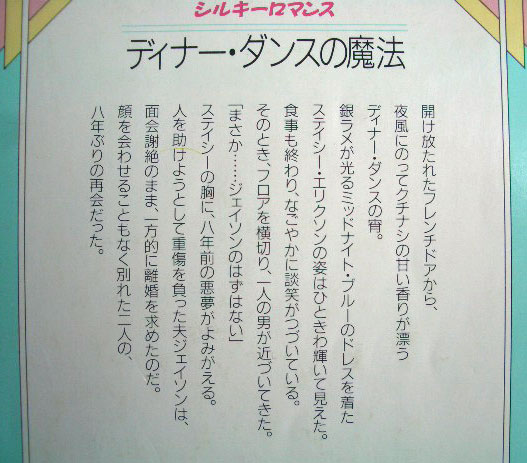 シルキーロマンス
ディナー・ダンスの魔法
開け放たれたフレンチドアから、
夜風にのってクチナシの甘い香りが漂う
ディナー・ダンスの宵。
銀ラメが光るミッドナイト・ブルーのドレスを着た
ステイシー・エリクソンの姿はひときわ輝いて見えた。
食事も終わり、なごやかに談笑がつづいている。
そのとき、フロアを横切り、一人の男が近づいてきた。
「まさか……ジェイソンのはずはない」
ステイシーの胸に、八年前の悪夢がよみがえる。
人を助けようとして重傷を負った夫ジェイソンは、
面会謝絶のまま、一方的に離婚を求めたのだ。
顔を会わせることもなく別れた二人の、
八年ぶりの再会だった。